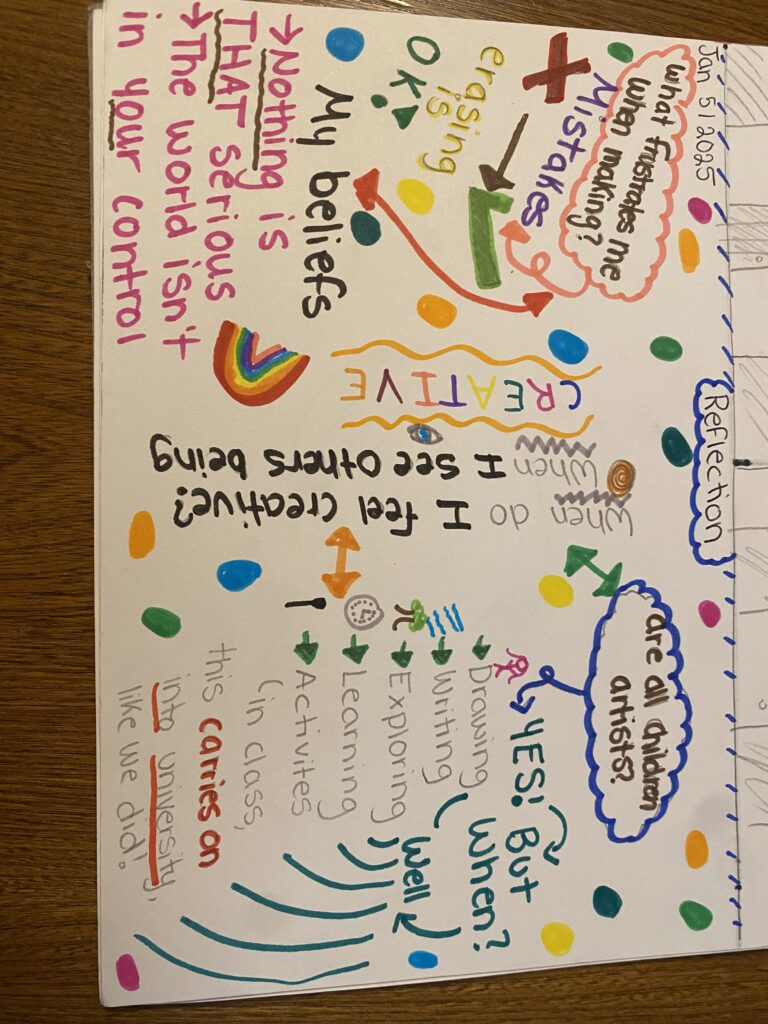 Jan 5 | 2025
Reflection
What frustrates me
when making?
Mistakes
erasing
is
OK!
My beliefs
→ Nothing is
THAT serious
→ The world isn't
in your control
When do I feel creative?
When I see others being
CREATIVE
are all children
artists?
YES! But
when?
Well
Drawing
Writing
Exploring
Learning
Activites
(in class,
this carries on
into university,
like we did!